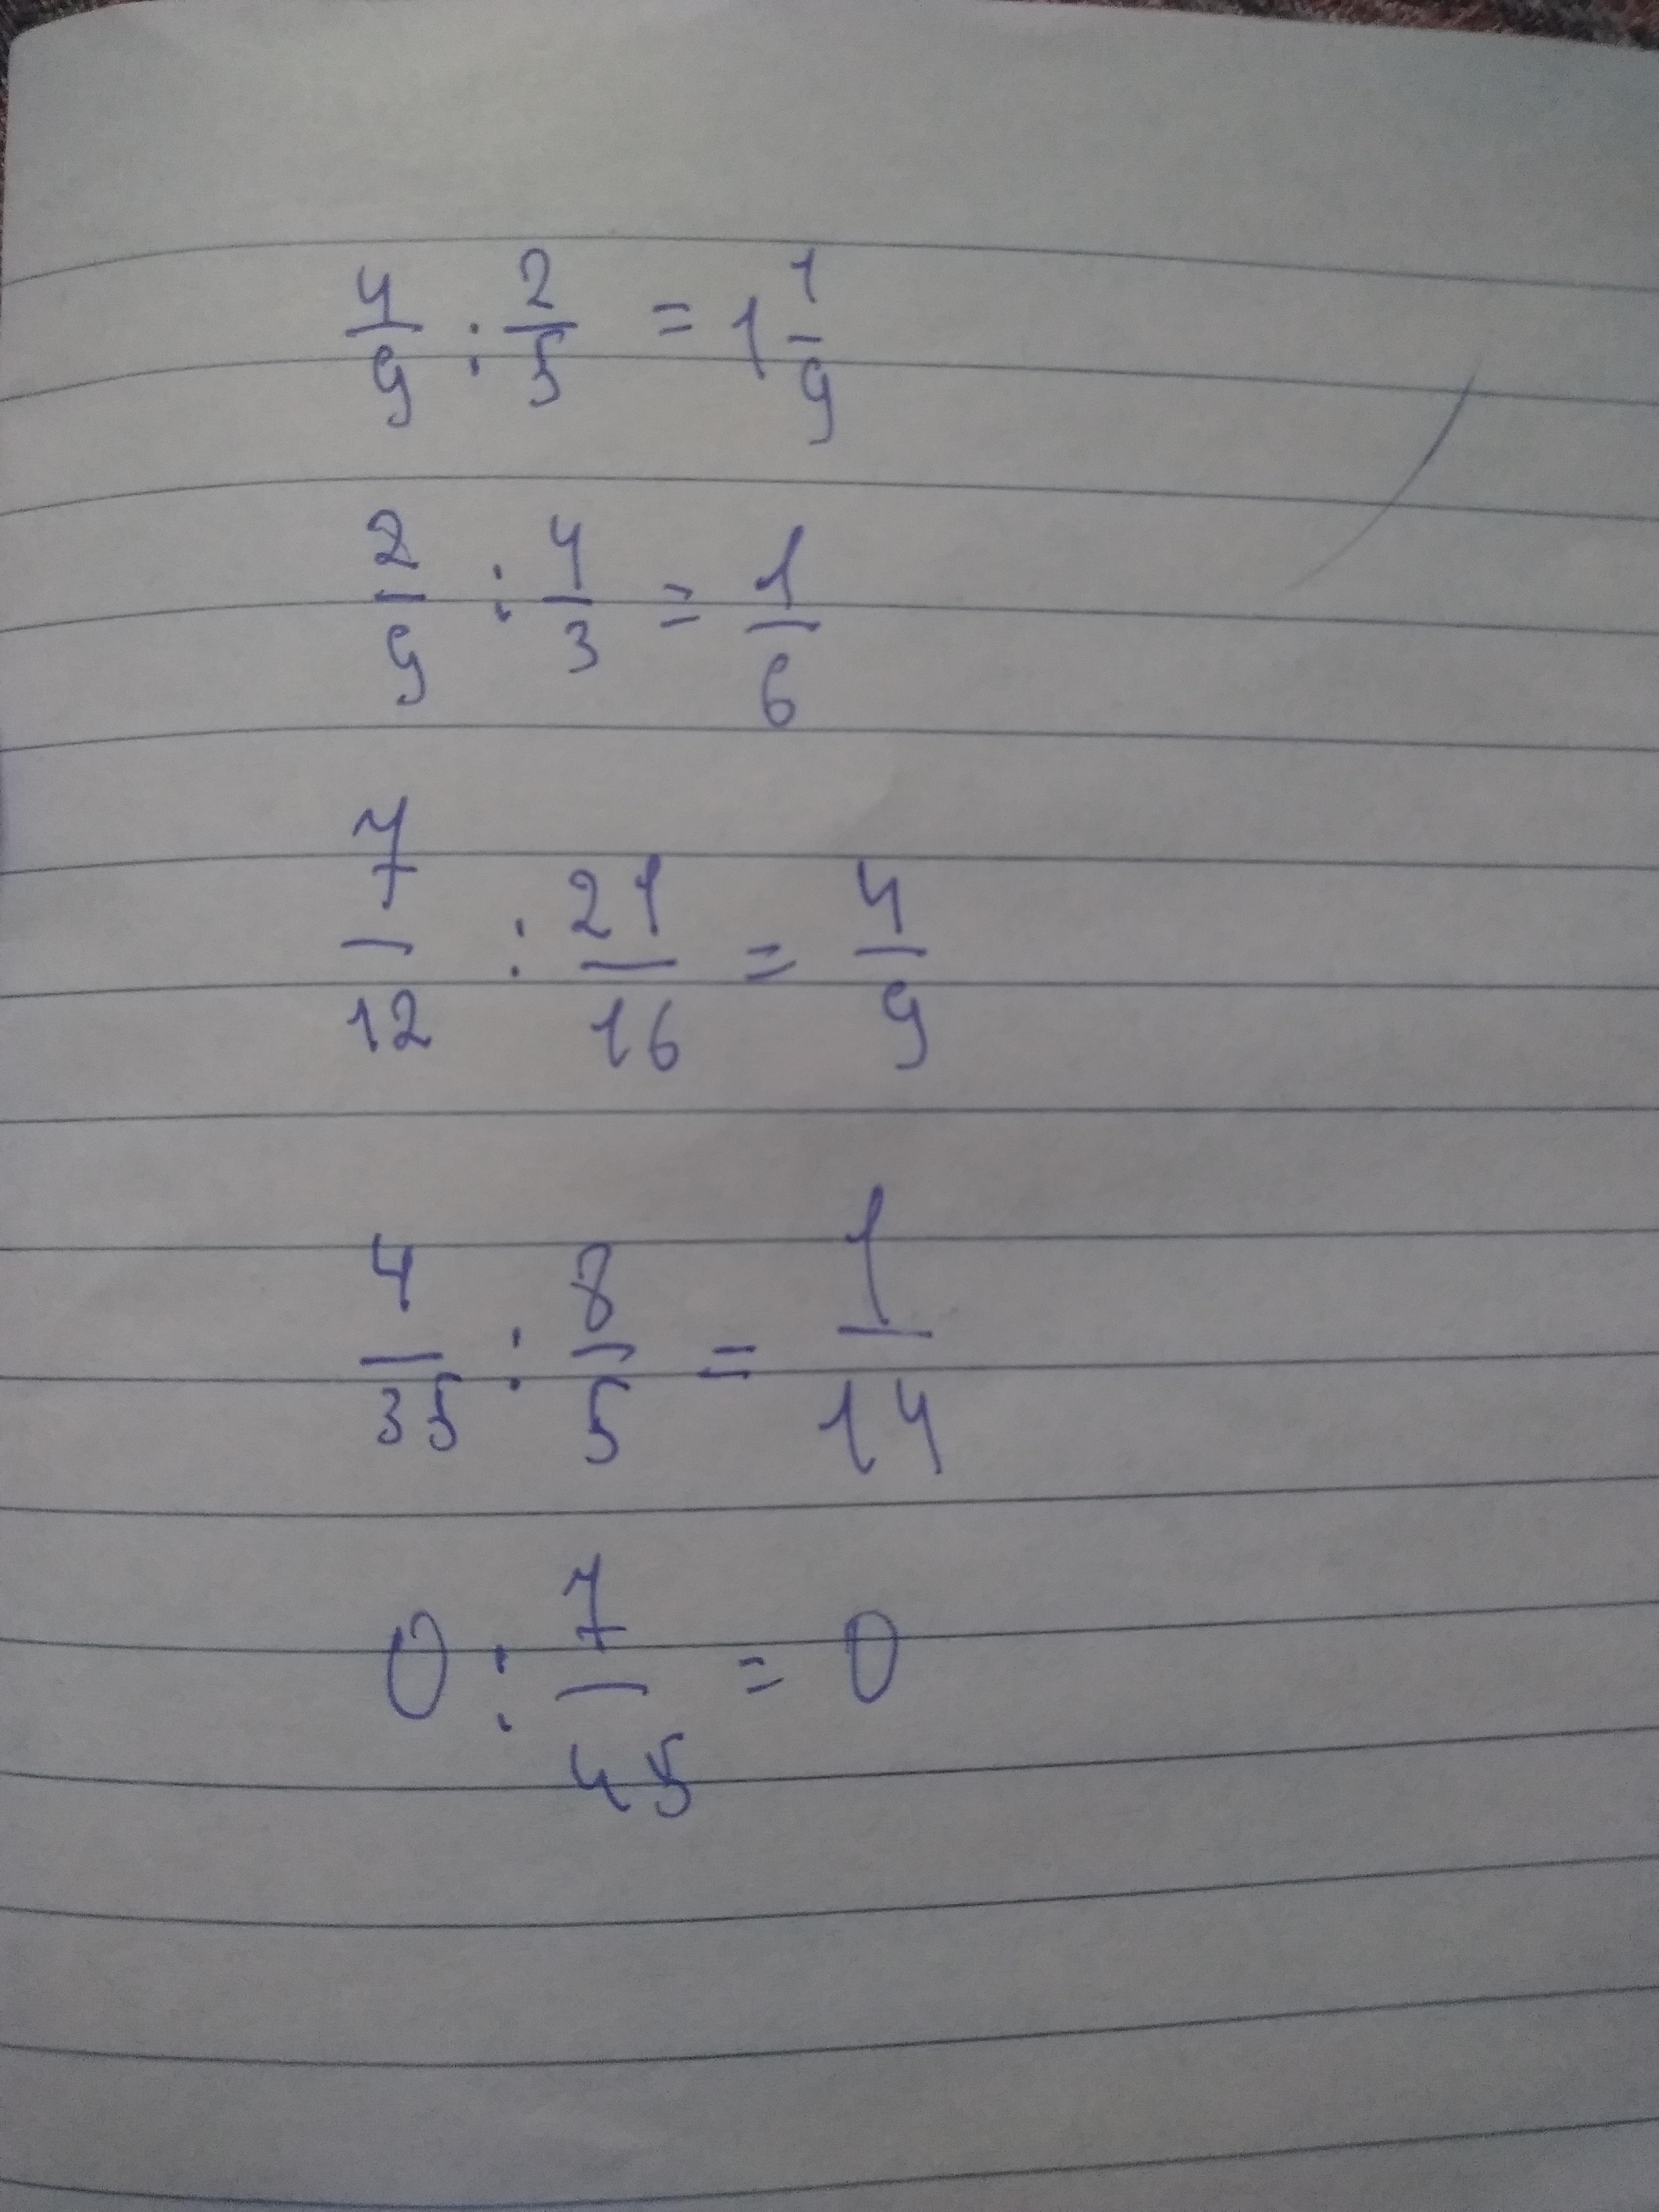 4/9 : 2/5 = 1 1/9
2/9 : 4/3 = 1/6
7/12 : 21/16 = 4/9
4/35 : 8/5 = 1/14
0 : 7/45 = 0